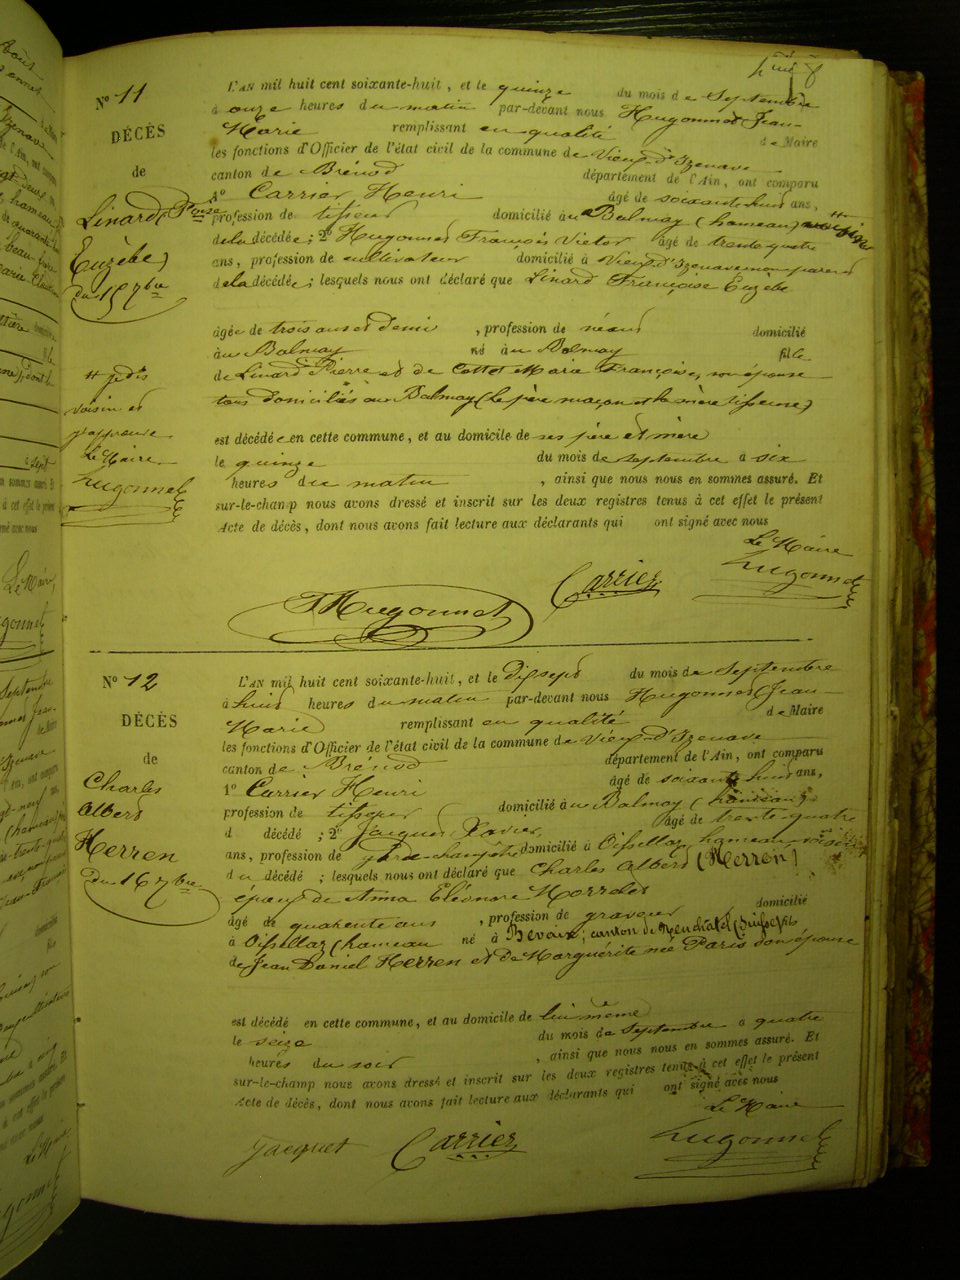 huit
N° 11
DÉCÈS
de
Linard Françoise
Euzèbe
du 15 7bre
L'AN mil huit cent soixante-huit, et le quinze du mois de Septembre
à onze heures du matin par-devant nous Hugonnet Jean-
Marie remplissant en qualité de Maire
les fonctions d'Officier de l'état civil de la commune de Vieux-d'Izenave
canton de Brénod département de l'Ain, ont comparu
1° Carrier Henri âgé de soixante-huit ans,
profession de tisseur domicilié au Balmay (hameau)
de la décédée; 2° Hugonnet François Victor âgé de trente-quatre
ans, profession de cultivateur domicilié à Vieux-d'Izenave non parent
de la décédée; lesquels nous ont déclaré que Linard Françoise Euzèbe
âgée de trois ans et demi, profession de néant domicilié
au Balmay né au Balmay fille
de Linard Pierre et de Cottet Marie Françoise, son épouse
tous domiciliés au Balmay (le père maçon et la mère tisseuse)
est décédée en cette commune, et au domicile de ses père et mère
le quinze du mois de septembre à six
heures du matin, ainsi que nous nous en sommes assuré. Et
sur-le-champ nous avons dressé et inscrit sur les deux registres tenus à cet effet le présent
Acte de décès, dont nous avons fait lecture aux déclarants qui ont signé avec nous
voisin et
j'approuve
Le Maire
Hugonnet
Le Maire
Hugonnet
Carrier
Hugonnet
N° 12
DÉCÈS
de
Charles
Albert
Herren
Du 16 7bre
L'AN mil huit cent soixante-huit, et le dix sept du mois de Septembre
à huit heures du matin par-devant nous Hugonnet Jean-
Marie remplissant en qualité de Maire
les fonctions d'Officier de l'état civil de la commune de Vieux-d'Izenave
canton de Brénod département de l'Ain, ont comparu
1° Carrier Henri âgé de soixante huit ans,
profession de tisseur domicilié au Balmay (hameau)
d décédé; 2° Jacquet Xavier, âgé de trente-quatre
ans, profession de garde-champêtre domicilié à Oissellaz hameau, voisin
du décédé; lesquels nous ont déclaré que Charles Albert (Herren)
époux de Anna Eléonore
âgé de quarante ans, profession de graveur domicilié
à Oissellaz (hameau né à Bevaix, canton de Neuchâtel (Suisse) fils
de Jean Daniel Herren et de Marguérite née Paris son épouse
est décédé en cette commune, et au domicile de lui même
le seize du mois de septembre à quatre
heures du soir, ainsi que nous nous en sommes assuré. Et
sur-le-champ nous avons dressé et inscrit sur les deux registres tenus à cet effet le présent
Acte de décès, dont nous avons fait lecture aux déclarants qui ont signé avec nous
Le Maire
Jacquet Carrier Hugonnet